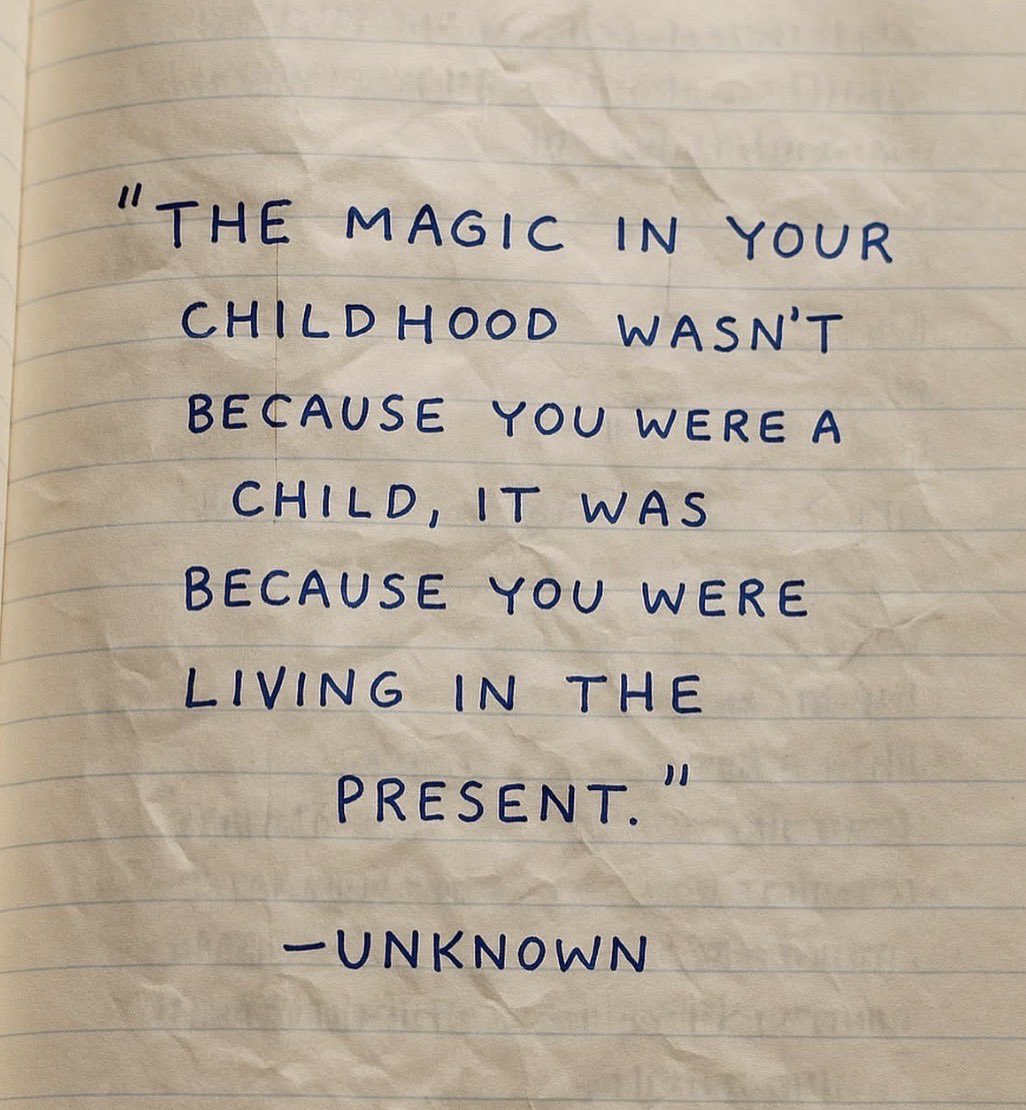 "THE MAGIC IN YOUR
CHILDHOOD WASN'T
BECAUSE YOU WERE A
CHILD, IT WAS
BECAUSE YOU WERE
LIVING IN THE
PRESENT."
—UNKNOWN